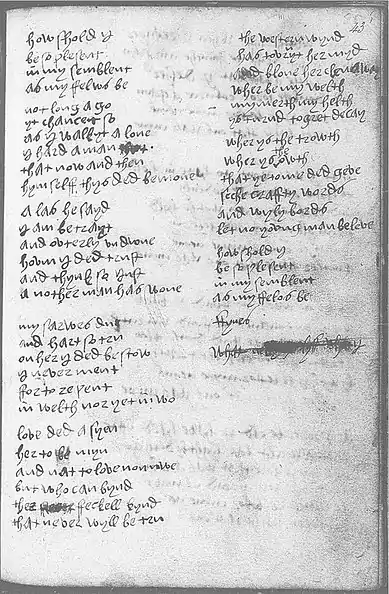 43
how shold y
be so plesent
in my semblent
as my felws be
not long ago
yt chanced so
as y walkyt alone
y hard a man
that now and then
hymselff thys ded bemone
alas he sayd
y am betrayt
and otterly undone
hom y ded trust
and thynk so gust
another man has wone
my sarwes du
and hart so tru
on her y ded bestow
y never ment
for to repent
in welth nor yet in wo
love ded asyen
her to be myn
and nat to love non nwe
but who can bynd
ther feckell kynd
that never wyll be tru
the western wynd
has torny t her mynd
and blone her clene awa
wher be my welth
my merth my helth
ys turnd to gret decay
wher ys the trowth
wher ys the owth
that ye to me ded geve
seche craffty words
and wyly bords
let no yong man beleve
how shold y
be so plesent
in my semblent
as my felos be
ffynes